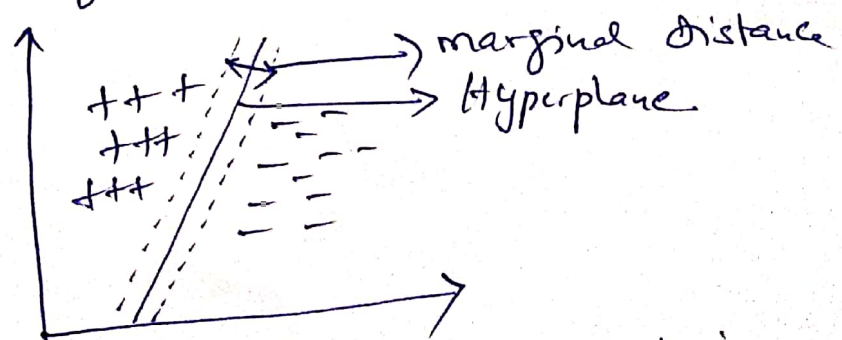 marginal distance
Hyperplane